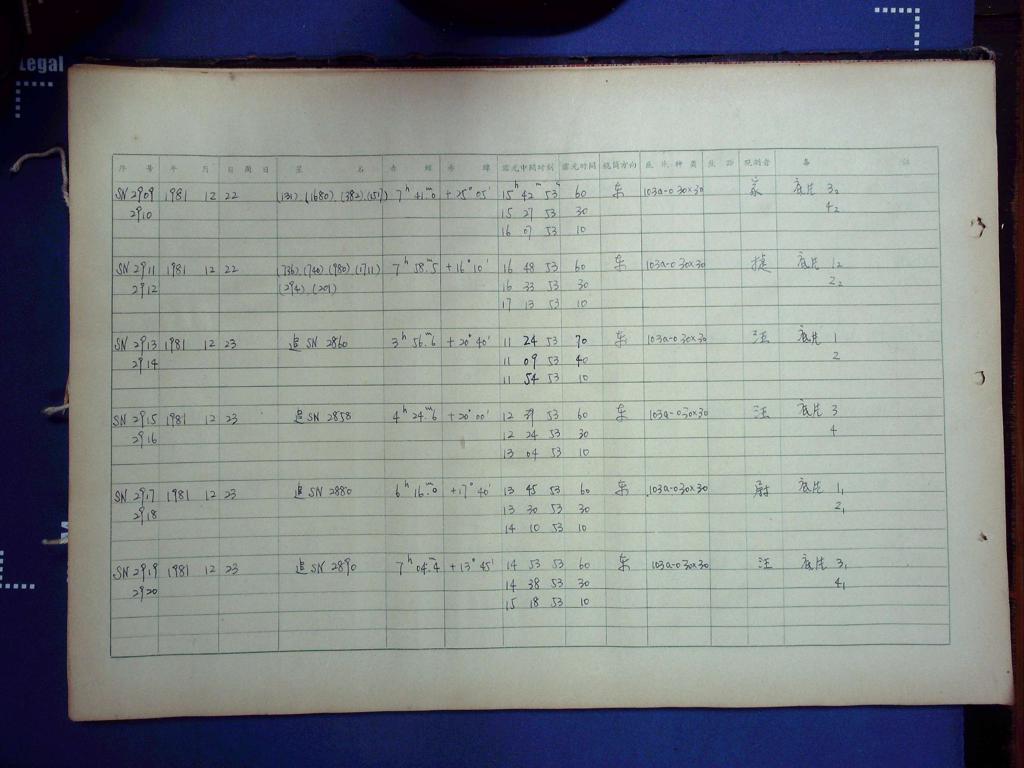 Legal
序 号 年 月 日 周日 星 名 赤 經 赤 緯 露光中間时刻 露光时间 鏡筒方向 底片种类 焦距 观測者 备 註
SN 2909 1981 12 22 (1680), (382), 7h 41m.0 +25° 05′ 15h 42m 53s 60 东 103a-0 30×30 底片 3₂
2910 15 27 53 30 4₂
16 07 53 10
SN 2911 1981 12 22 (736), (740), (980), (1711) 7h 58m.5 +16° 10′ 16 48 53 60 东 103a-0 30×30 捷 底片 1₂
2912 (294), (201) 16 33 53 30 2₂
17 13 53 10
SN 2913 1981 12 23 追 SN 2860 3h 56m.6 +20° 40′ 11 24 53 70 东 103a-0 30×30 汪 底片 1
2914 11 09 53 40 2
11 54 53 10
SN 2915 1981 12 23 追 SN 2858 4h 24m.6 +20° 00′ 12 39 53 60 东 103a-0 30×30 汪 底片 3
2916 12 24 53 30 4
13 04 53 10
SN 2917 1981 12 23 追 SN 2880 6h 16m.0 +17° 40′ 13 45 53 60 东 103a-0 30×30 尉 底片 1₁
2918 13 30 53 30 2₁
14 10 53 10
SN 2919 1981 12 23 追 SN 2890 7h 04m.4 +13° 45′ 14 53 53 60 东 103a-0 30×30 汪 底片 3₁
2920 14 38 53 30 4₁
15 18 53 10